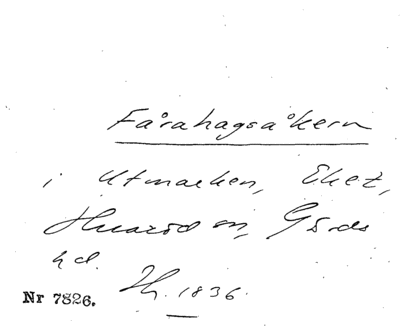 Fårahagsåkern
i Utmarken, Eket,
Huaröd sn, Gärds
hd.
Nr 7826. Th. 1836.